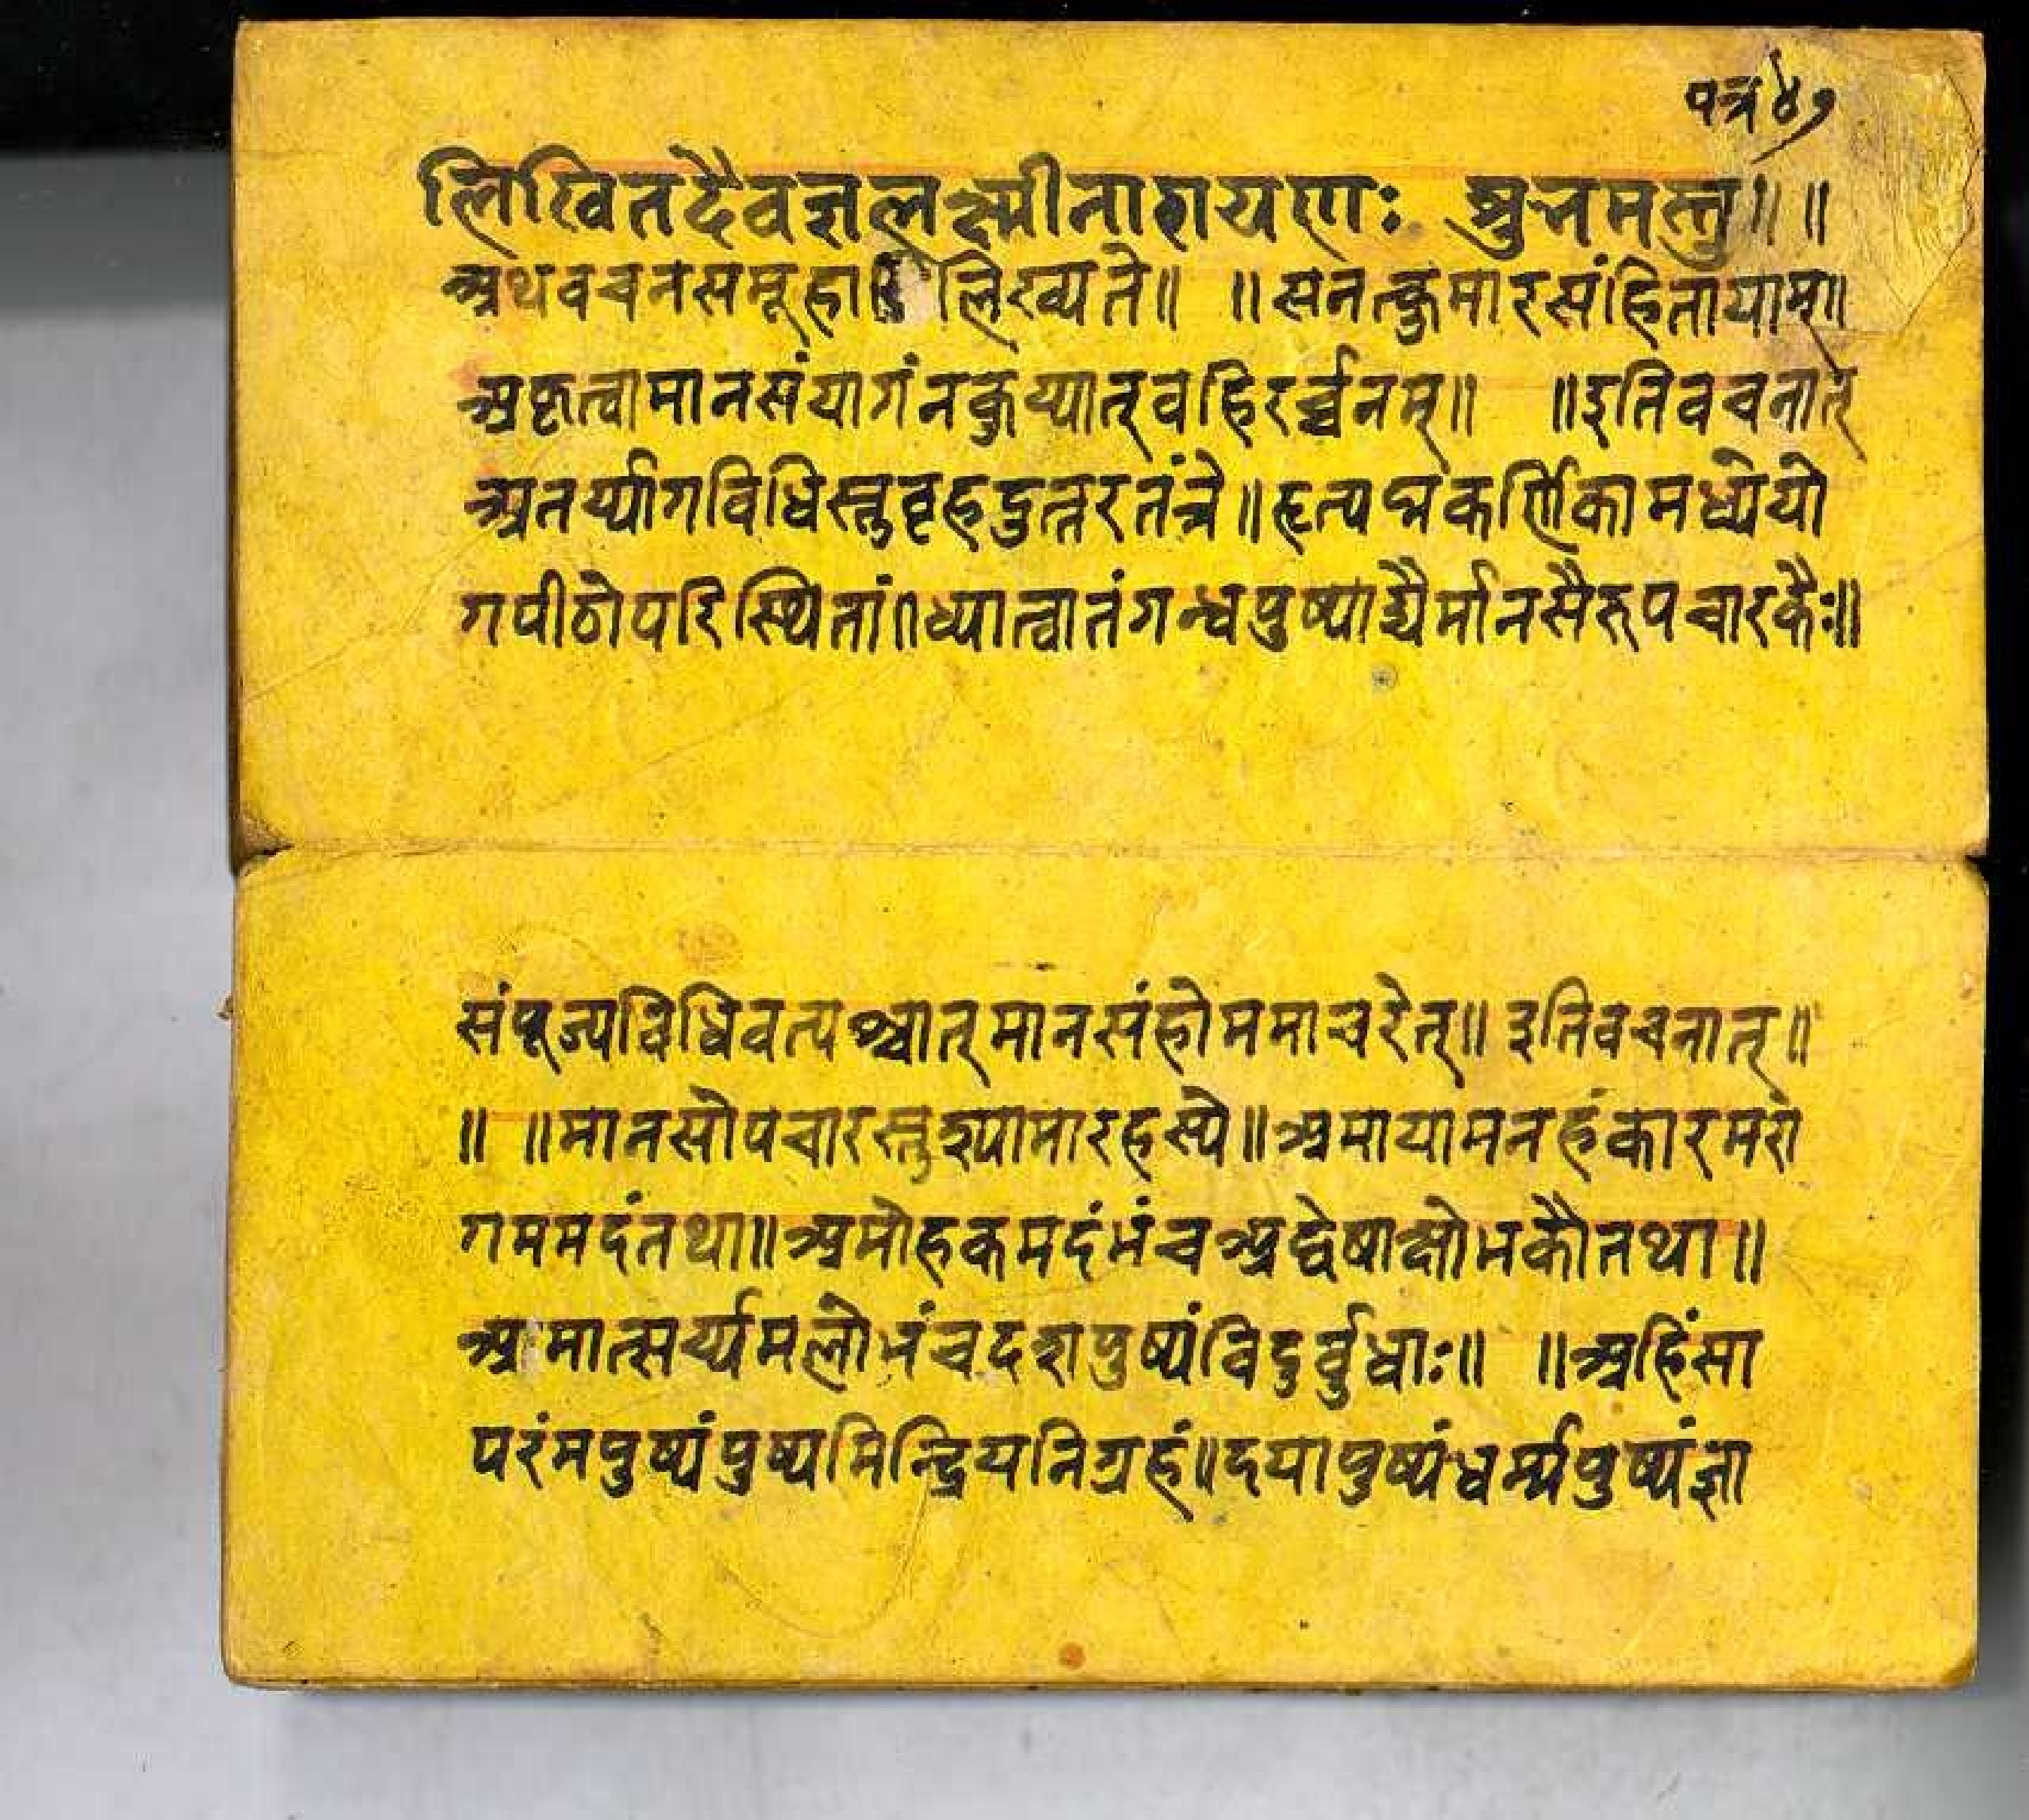 पत्र ४७
लिखितदैवज्ञलक्ष्मीनारायणः शुभमस्तु॥ ॥
अथवचनसमूहा लिख्यते॥ ॥सनत्कुमारसंहितायाम्॥
अकृत्वामानसंयागंनकुर्य्यात्वहिरर्च्चनम्॥ ॥इतिवचनात्
अतर्य्यागविधिस्तुवृहदुत्तरतंत्रे॥हृत्पद्मकर्णिकामध्येयो
गपीठोपरिस्थितां॥ध्यात्वातंगन्धपुष्पाद्यैर्मानसैरुपचारकैः॥
संपूज्यविधिवत्पश्चात्मानसंहोममाचरेत्॥इतिवचनात्॥
॥ ॥मानसोपचारस्तुश्यामारहस्ये॥अमायामनहंकारमरा
गममदंतथा॥अमोहकमदंभंचअद्वेषाक्षोभकौतथा॥
अमात्सर्य्यमलोभंचदशपुष्पंविदुर्वुधाः॥ ॥अहिंसा
परंमपुष्पंपुष्पमिन्द्रियनिग्रहं॥दयापुष्पंधर्म्मपुष्पंज्ञा